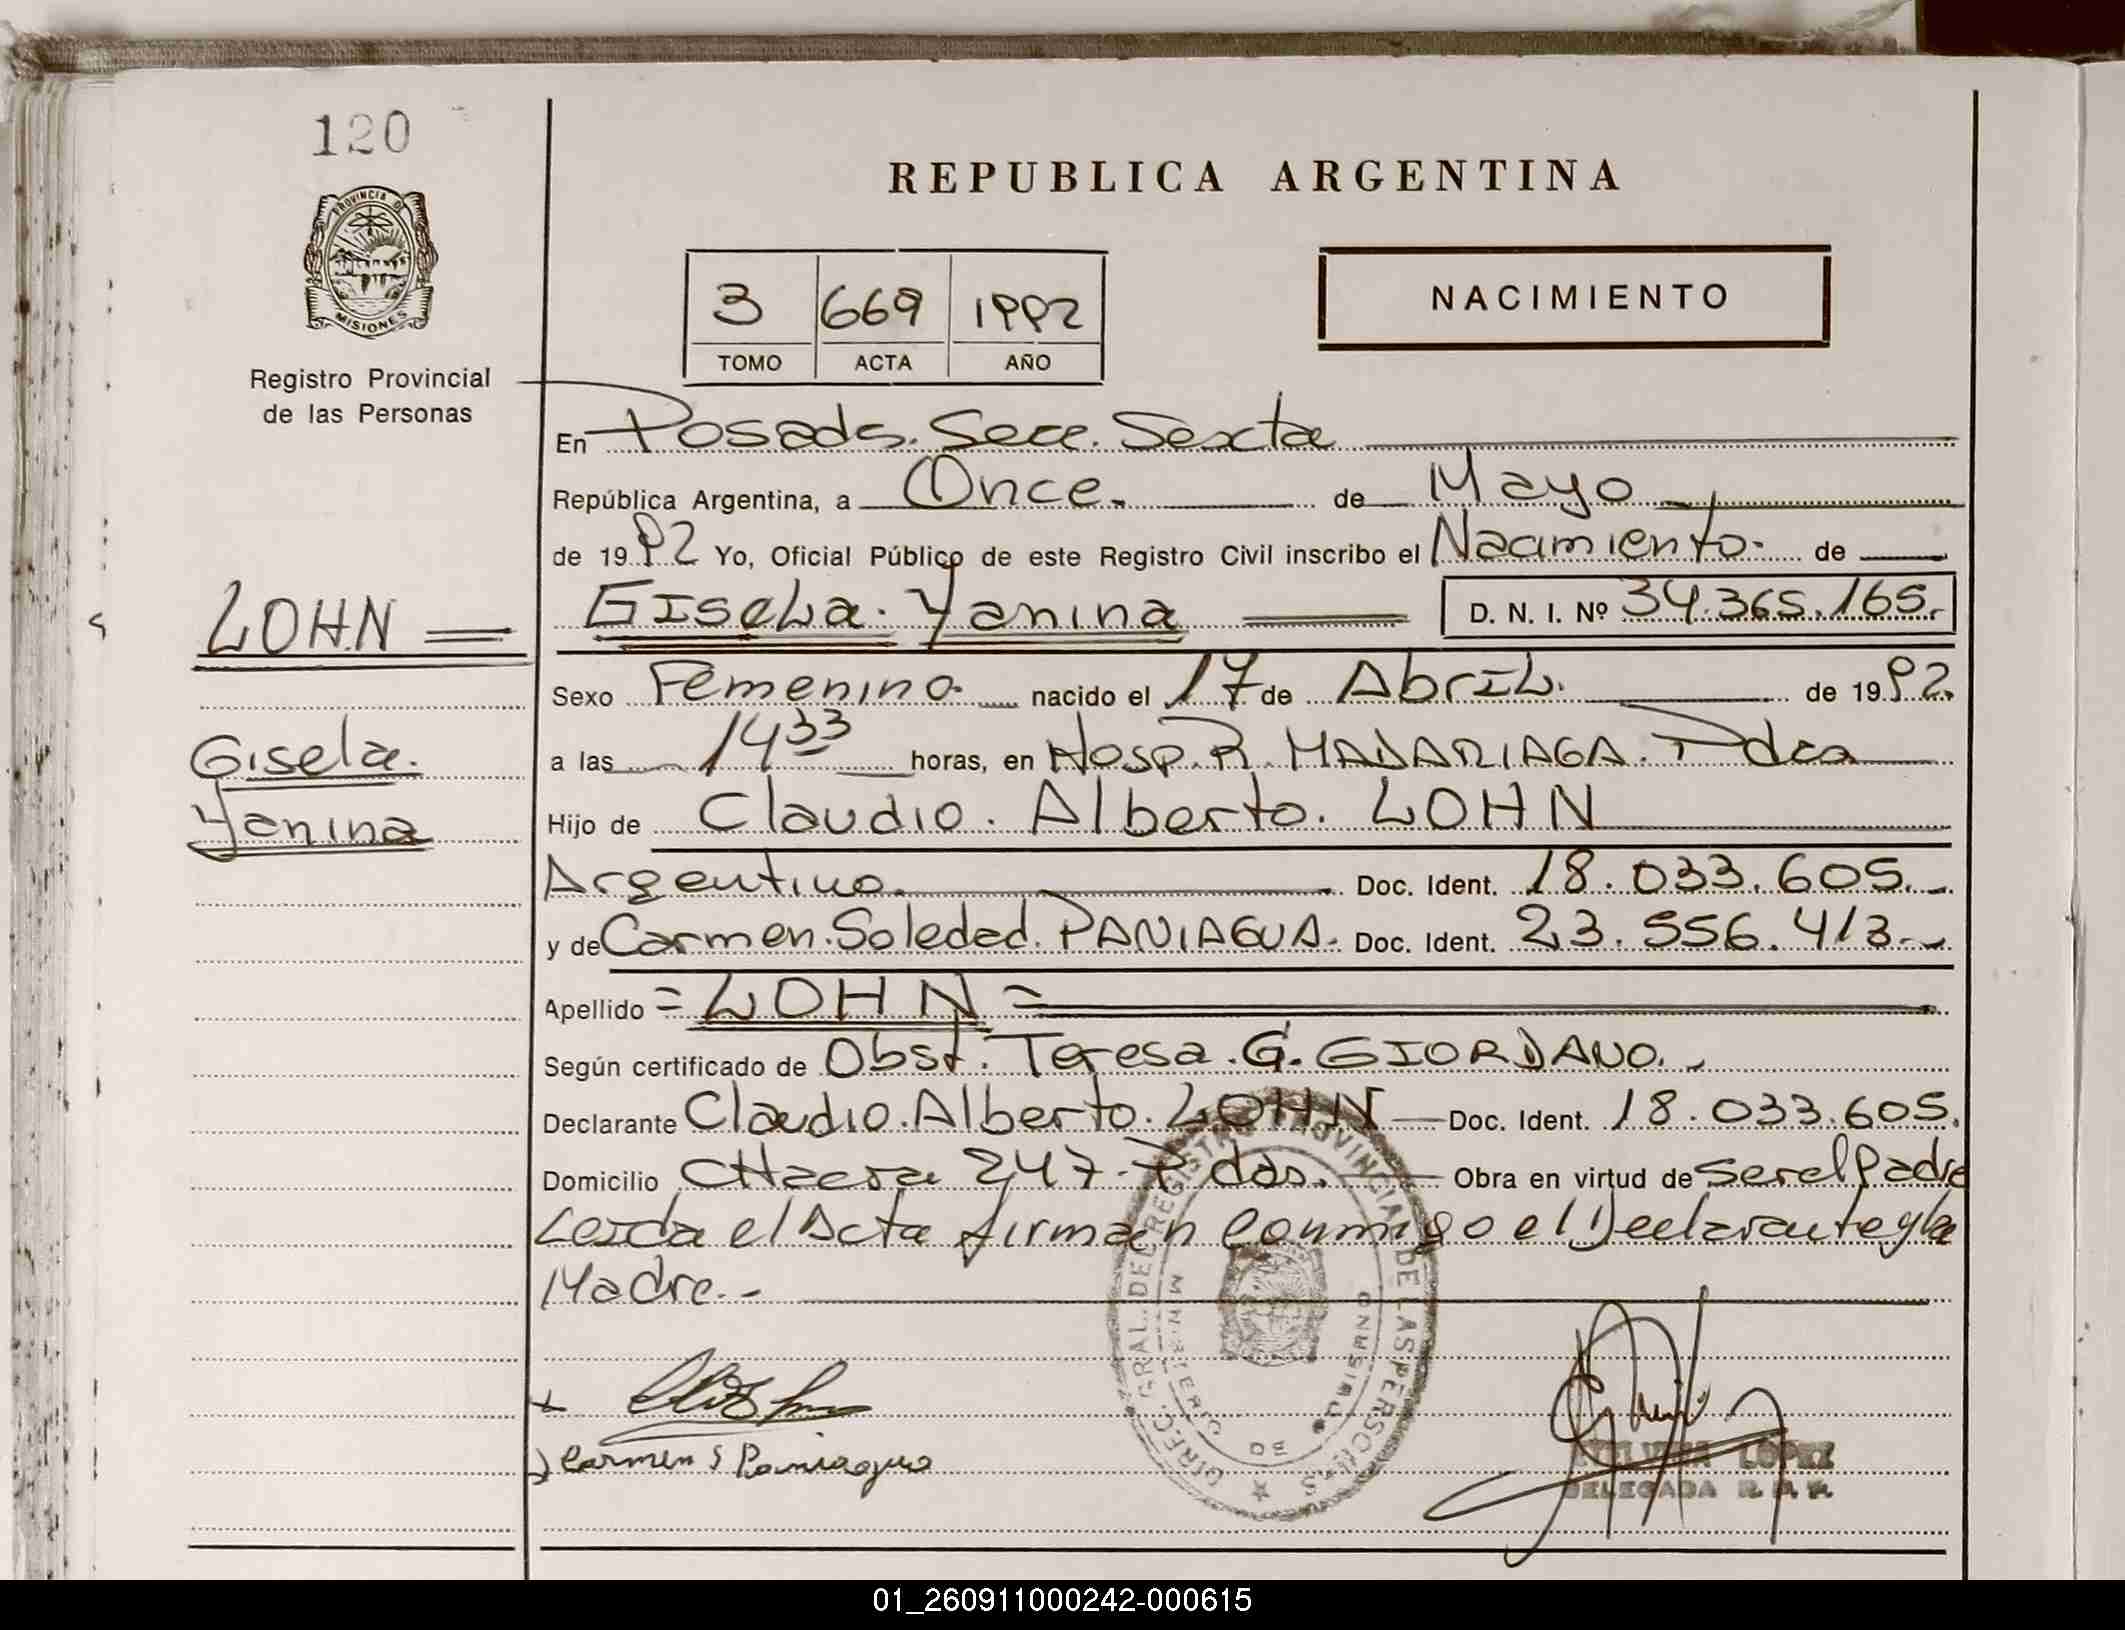 120
REPUBLICA ARGENTINA
PROVINCIA DE
MISIONES
3 669 1992
TOMO ACTA AÑO
NACIMIENTO
Registro Provincial
de las Personas
En Posadas. Secc. Sexta
República Argentina, a Once. de Mayo
de 1992 Yo, Oficial Público de este Registro Civil inscribo el Nacimiento. de
LOHN
Gisela. Yanina D. N. I. Nº 34.365.165.
Sexo Femenino. nacido el 17 de Abril. de 1992.
Gisela.
a las 14 33 horas, en Hosp. R. MADARIAGA. Pdas
Yanina
Hijo de Claudio. Alberto. LOHN
Argentino. Doc. Ident. 18.033.605.
y de Carmen. Soledad. PANIAGUA. Doc. Ident. 23.556.413.-
Apellido = LOHN =
Según certificado de Obst. Teresa. G. GIORDANO.
Declarante Claudio. Alberto. LOHN Doc. Ident. 18.033.605.
Domicilio CHacra 247. Pdas. Obra en virtud de Ser el Padre
Leida el Acta firman conmigo el Declarante y la
Madre.-
DIREC. GRAL. DEL REGISTRO PROVINCIAL DE LAS PERSONAS
MINISTERIO DE GOBIERNO
Carmen S Paniagua
LOPEZ
DELEGADA R. P. P.
01_260911000242-000615